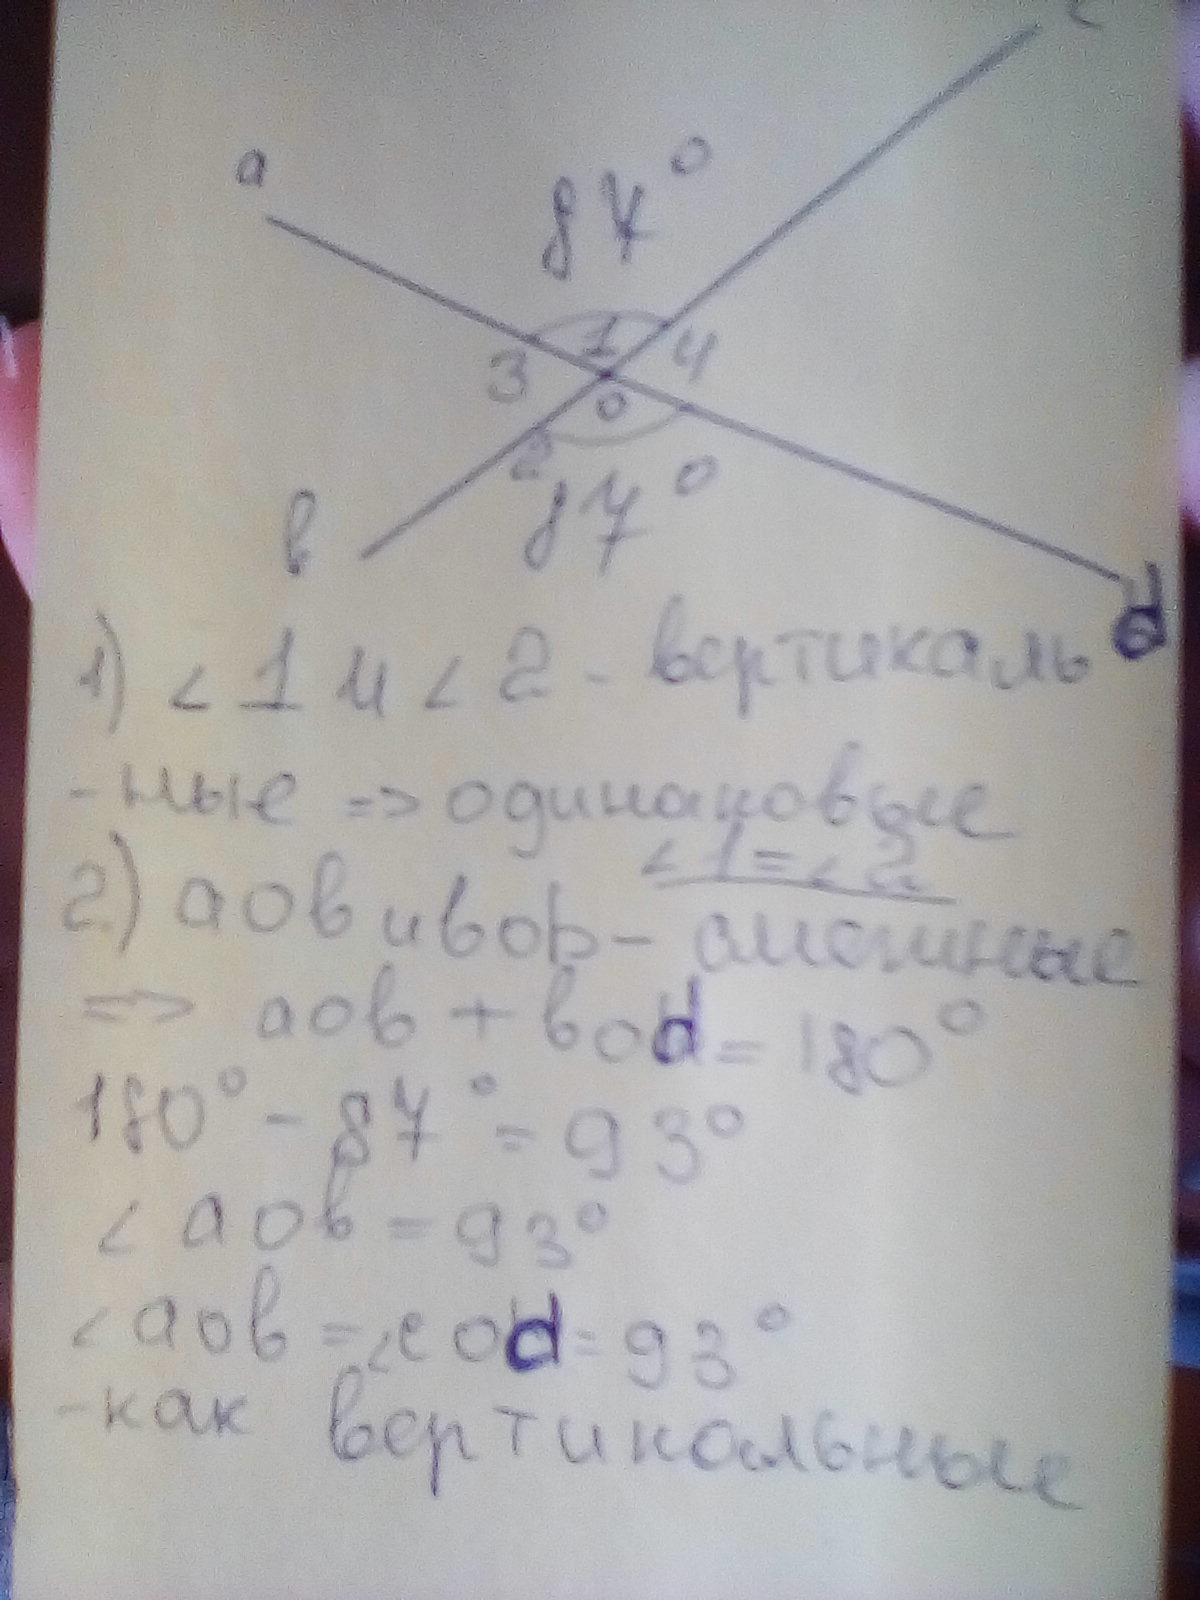 c
a
87°
1
3
4
0
2
87°
в
d
1) <1 и <2 - вертикаль
-ные => одинаковые
<1 = <2
2) аов и вор - смежные
=> аов + воd = 180°
180° - 87° = 93°
< аов = 93°
< аов = < соd = 93°
-как вертикальные